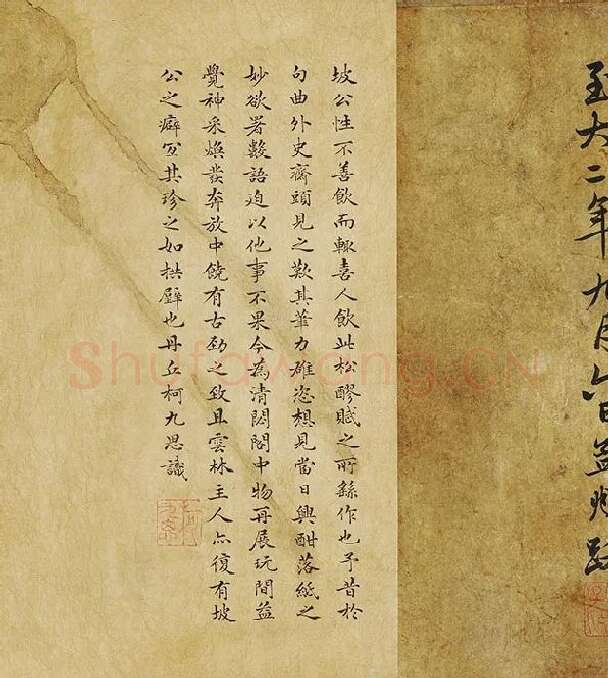 至大二年九月六日孟頫跋
坡公性不善飲而輒喜人飲此松醪賦之所繇作也予昔於
句曲外史齋頭見之歎其筆力雄恣想見當日興酣落紙之
妙欲著數語迫以他事不果今為清閟閣中物再展玩間益
覺神采煥發奔放中饒有古勁之致且雲林主人亦復有坡
公之癖宜其珍之如拱璧也丹丘柯九思識
Shufawang.CN